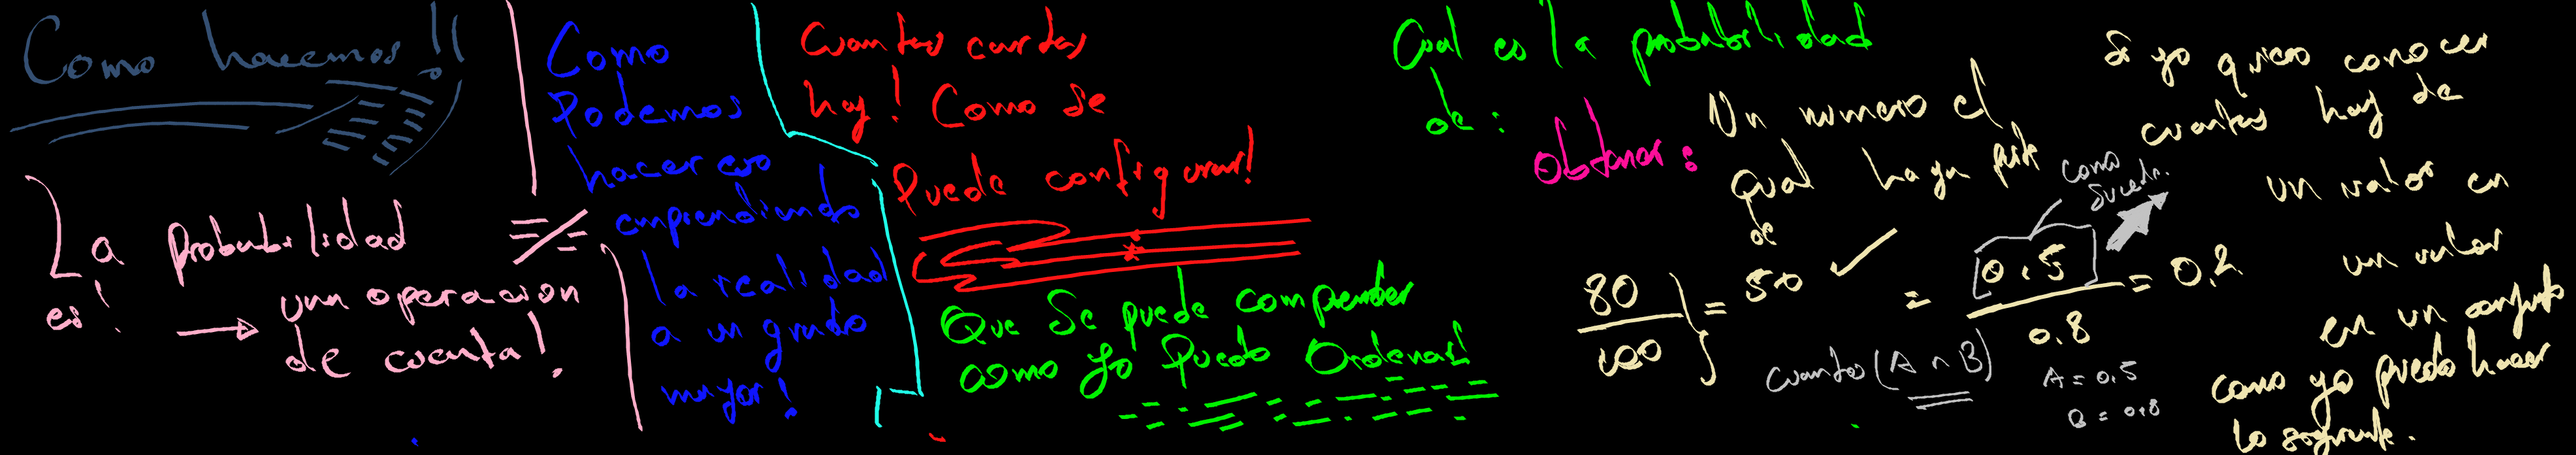 Como hacemos!!
La probabilidad
es!
→ una operacion
de cuenta!
Como
Podemos
hacer eso
emprendiendo
la realidad
a un grado
mayor!
Cuantas cartas
hay! Como se
Puede configurar!
Que Se puede comprender
como yo Puedo Ordenar!
Cual es la probabilidad
de:
Obtener:
Un numero el
Qual haya
de
80/100 = 50 ✓ = 0.5/0.8 = 0.2
Como
Suceder.
Cuantos (A ∩ B)
A = 0.5
B = 0.8
Si yo quiero conocer
cuantas hay de
un valor en
un valor
en un conjunto
como yo puedo hacer
lo siguiente.